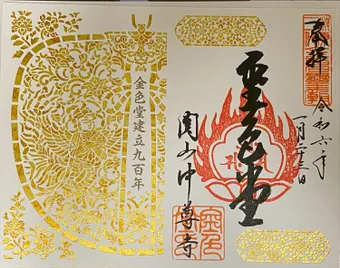 奉拝
令和六年
一月二十一日
金色堂
関山中尊寺
金色堂建立九百年